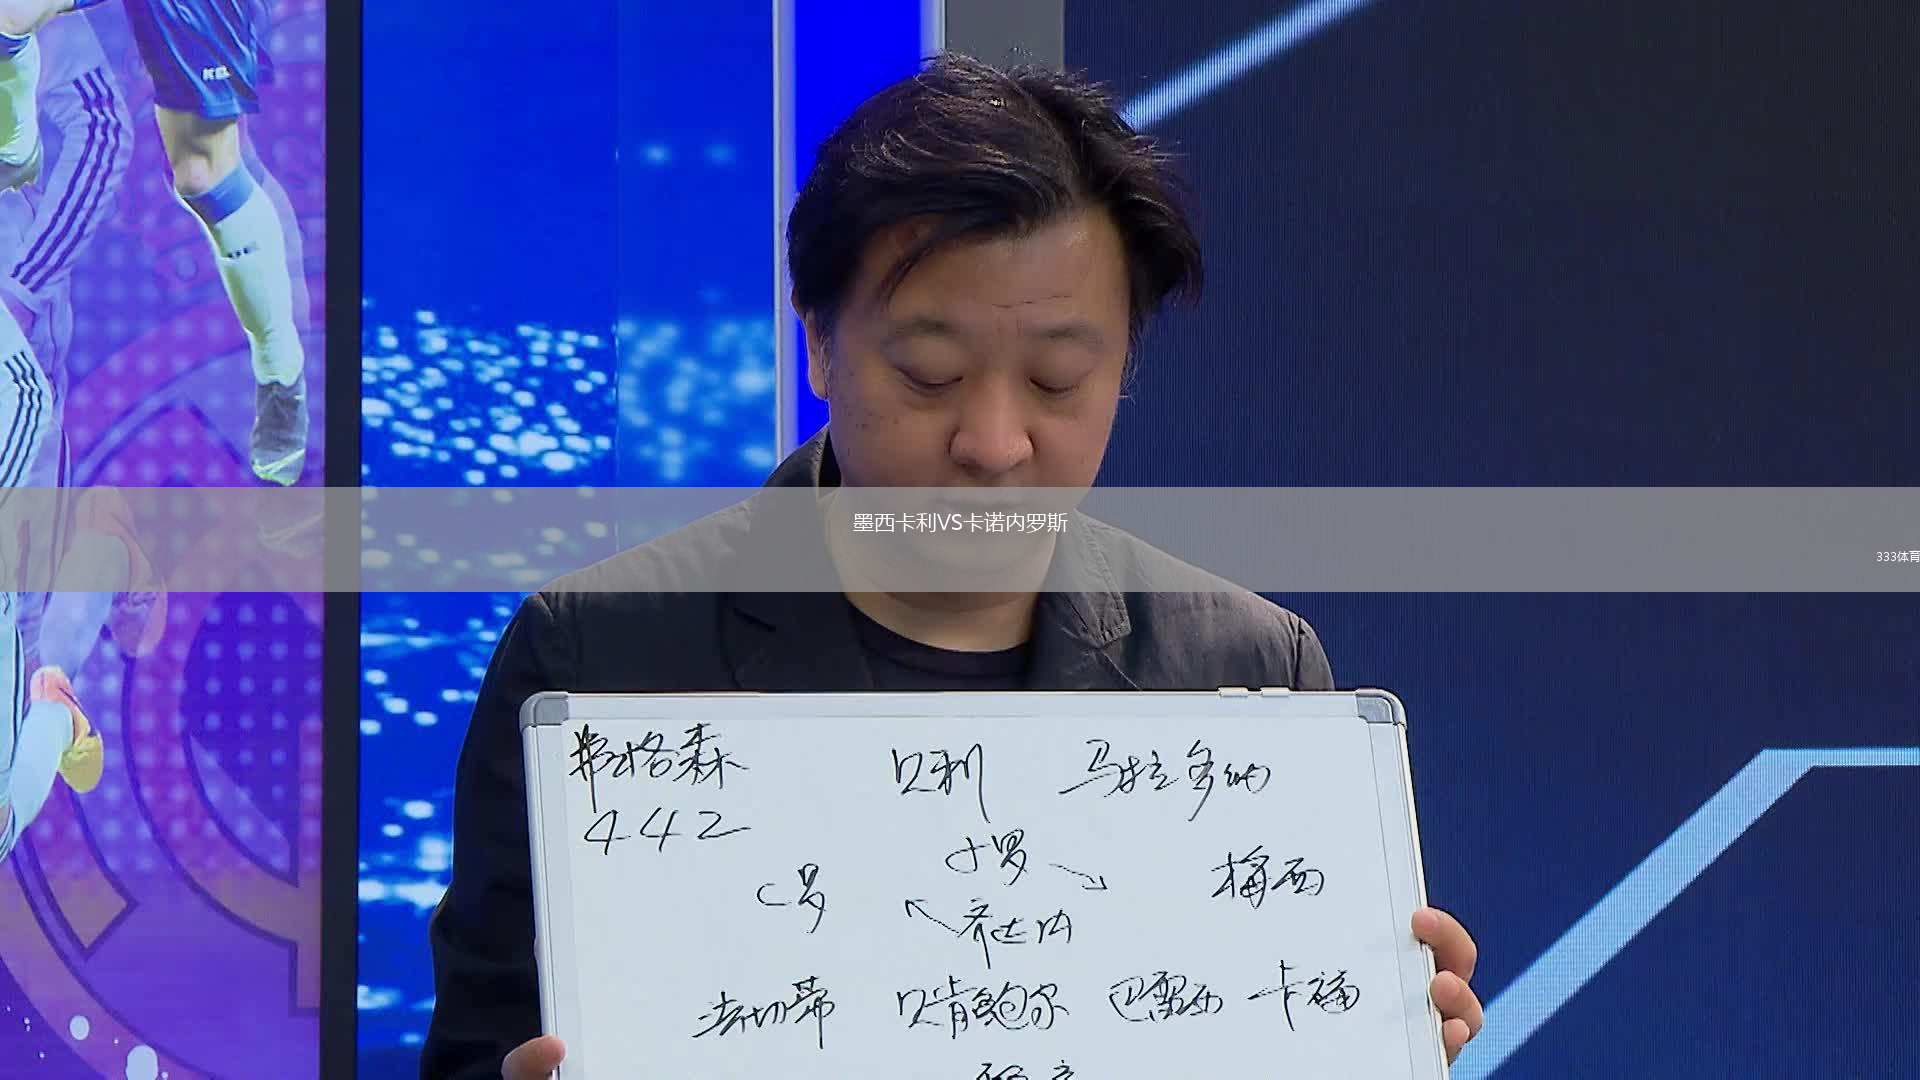 墨西卡利VS卡诺内罗斯
333体育
弗格森 贝利 马拉多纳
442
小罗
C罗 梅西
齐达内
法切蒂 贝肯鲍尔 巴雷西 卡福